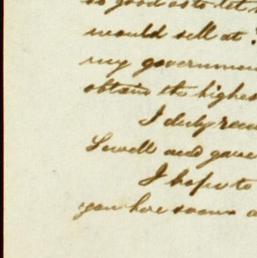 so good as to let
would sell at?
my governmen
obtain the highes
I duly rec
Lowell and gave
I hope to
you here soon a